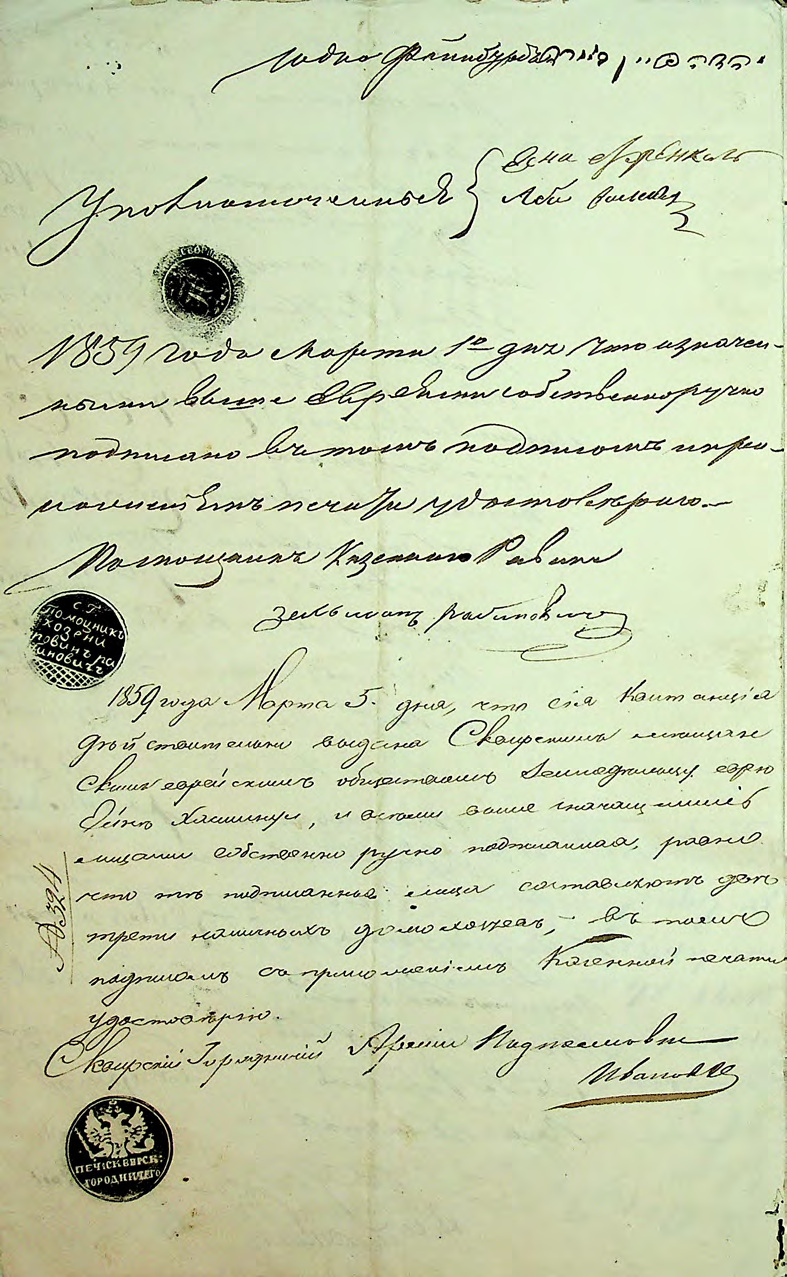 Іодко Файнбурдъ
Уповномоченные { Есна Френкель
Леба
1859 года Марта 1го дня что означен-
ными выше Евреями собственноручно
подписано въ томъ подписомъ и при-
ложеніемъ печати удостовѣряю.—
Помощникъ Казеннаго Равина
Зельманъ Рабиновичъ
С. Г.
Помощникъ
Казени
равинъ ра
биновичъ
1859 года Марта 5. дня, что сія квитанція
дѣйствительно выдана Сквирскимъ мѣщан
скимъ еврейскимъ обществомъ Земледѣльцу евре
, и всѣми выше значащимися
лицами собственно ручно подписанная, равно
что тѣ подписанные лица составляютъ двѣ
трети наличныхъ домохозяевъ,— въ томъ
подписомъ съ приложеніемъ Казенной печати
удостовѣряю.
Сквирскій Городничій Арміи Подполковникъ
Ивановъ
№ 324
ПЕЧ: СКВИРСК:
ГОРОДНИЧЕГО